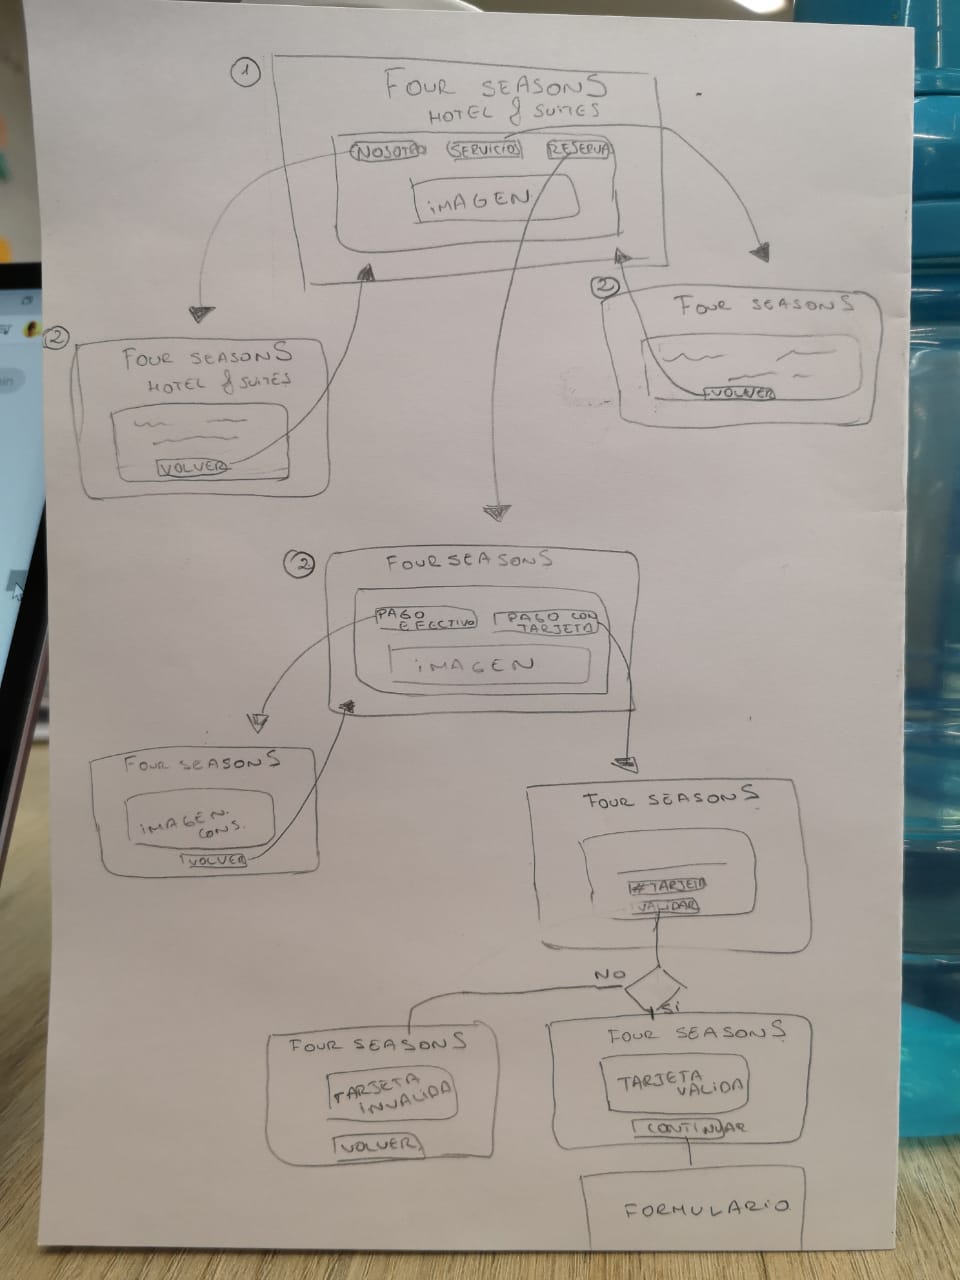 1
FOUR SEASONS
HOTEL & SUITES
NOSOTRO
SERVICIOS
RESERVA
IMAGEN
2
FOUR SEASONS
HOTEL & SUITES
VOLVER
2
FOUR SEASONS
VOLVER
2
FOUR SEASONS
PAGO
EFECTIVO
PAGO CON
TARJETA
IMAGEN
FOUR SEASONS
IMAGEN.
CONS.
VOLVER
FOUR SEASONS
#TARJETA
VALIDAR
NO
SI
FOUR SEASONS
TARJETA
INVALIDA
VOLVER
FOUR SEASONS
TARJETA
VALIDA
CONTINUAR
FORMULARIO